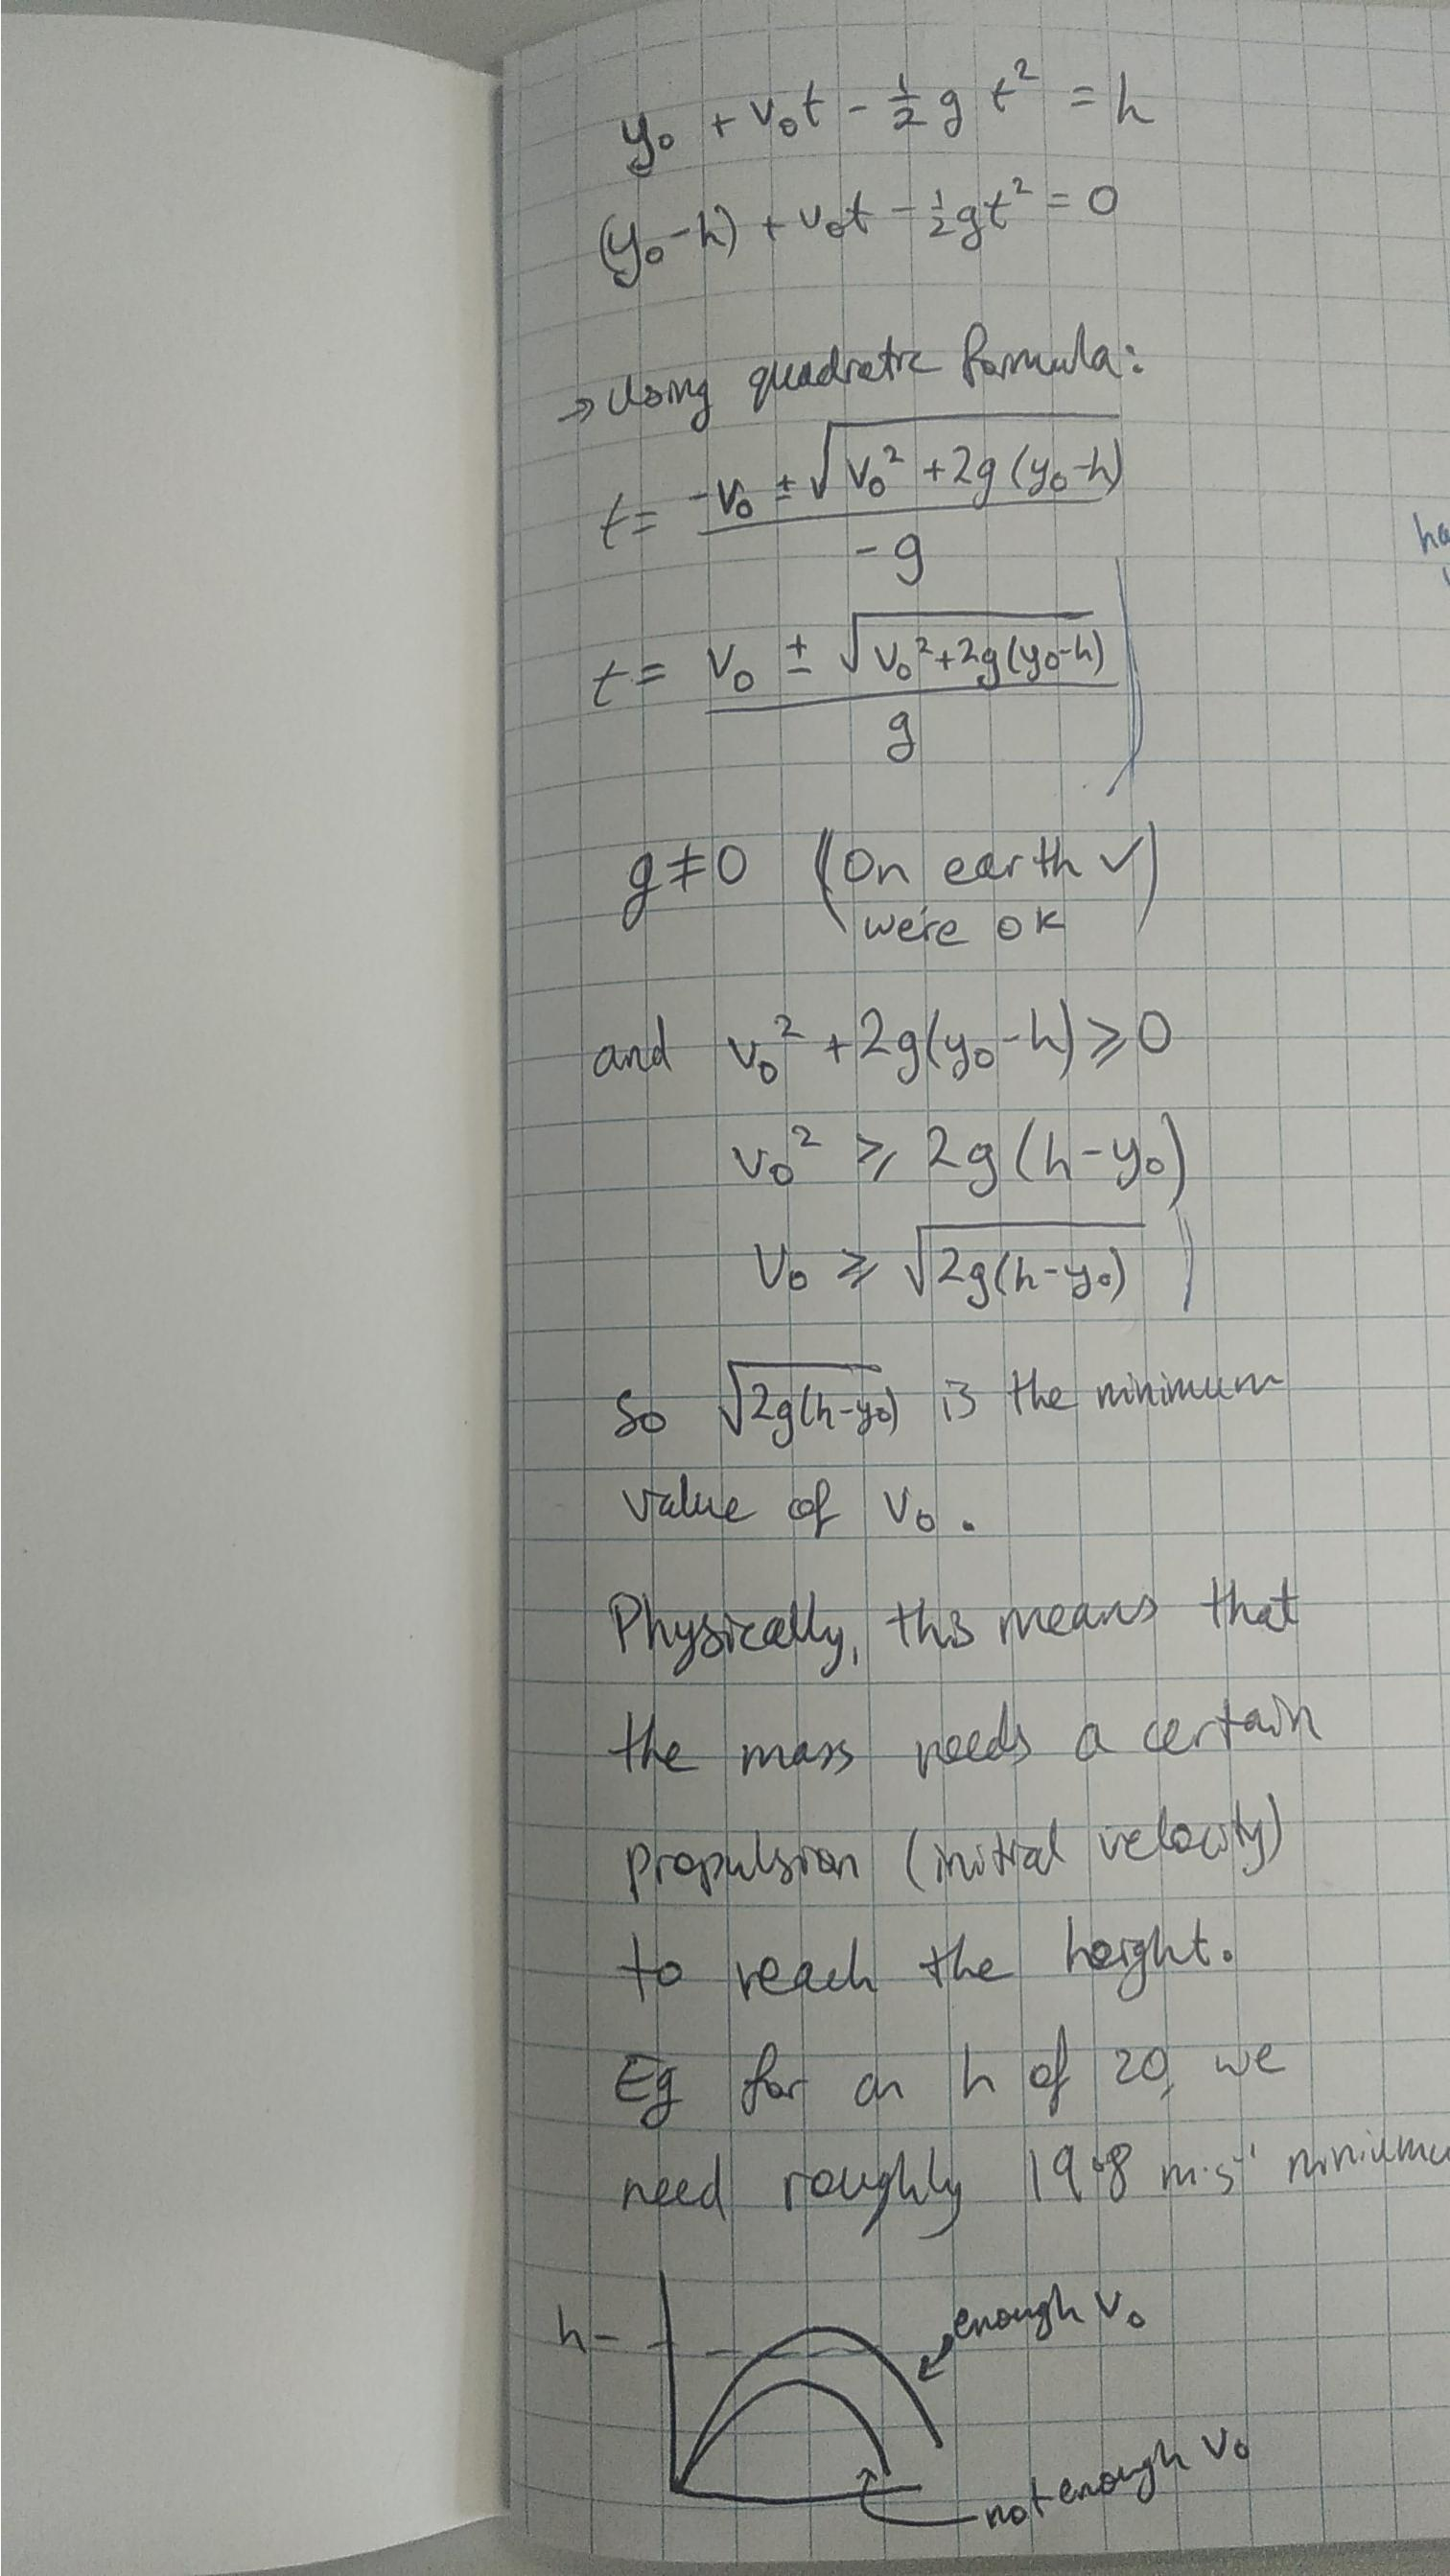 y₀ + v₀t - ½ g t² = h
(y₀-h) + v₀t - ½gt² = 0
→ Using quadratic formula:
t = (-v₀ ± √(v₀² + 2g(y₀-h))) / -g
t = (v₀ ± √(v₀² + 2g(y₀-h))) / g
g ≠ 0 (On earth ✓
we're ok)
and v₀² + 2g(y₀-h) ⩾ 0
v₀² ⩾ 2g(h-y₀)
v₀ ⩾ √(2g(h-y₀))
So √(2g(h-y₀)) is the minimum
value of v₀.
Physically, this means that
the mass needs a certain
propulsion (initial velocity)
to reach the height.
Eg for an h of 20, we
need roughly 19.8 m·s⁻¹
h-
enough v₀
not enough v₀